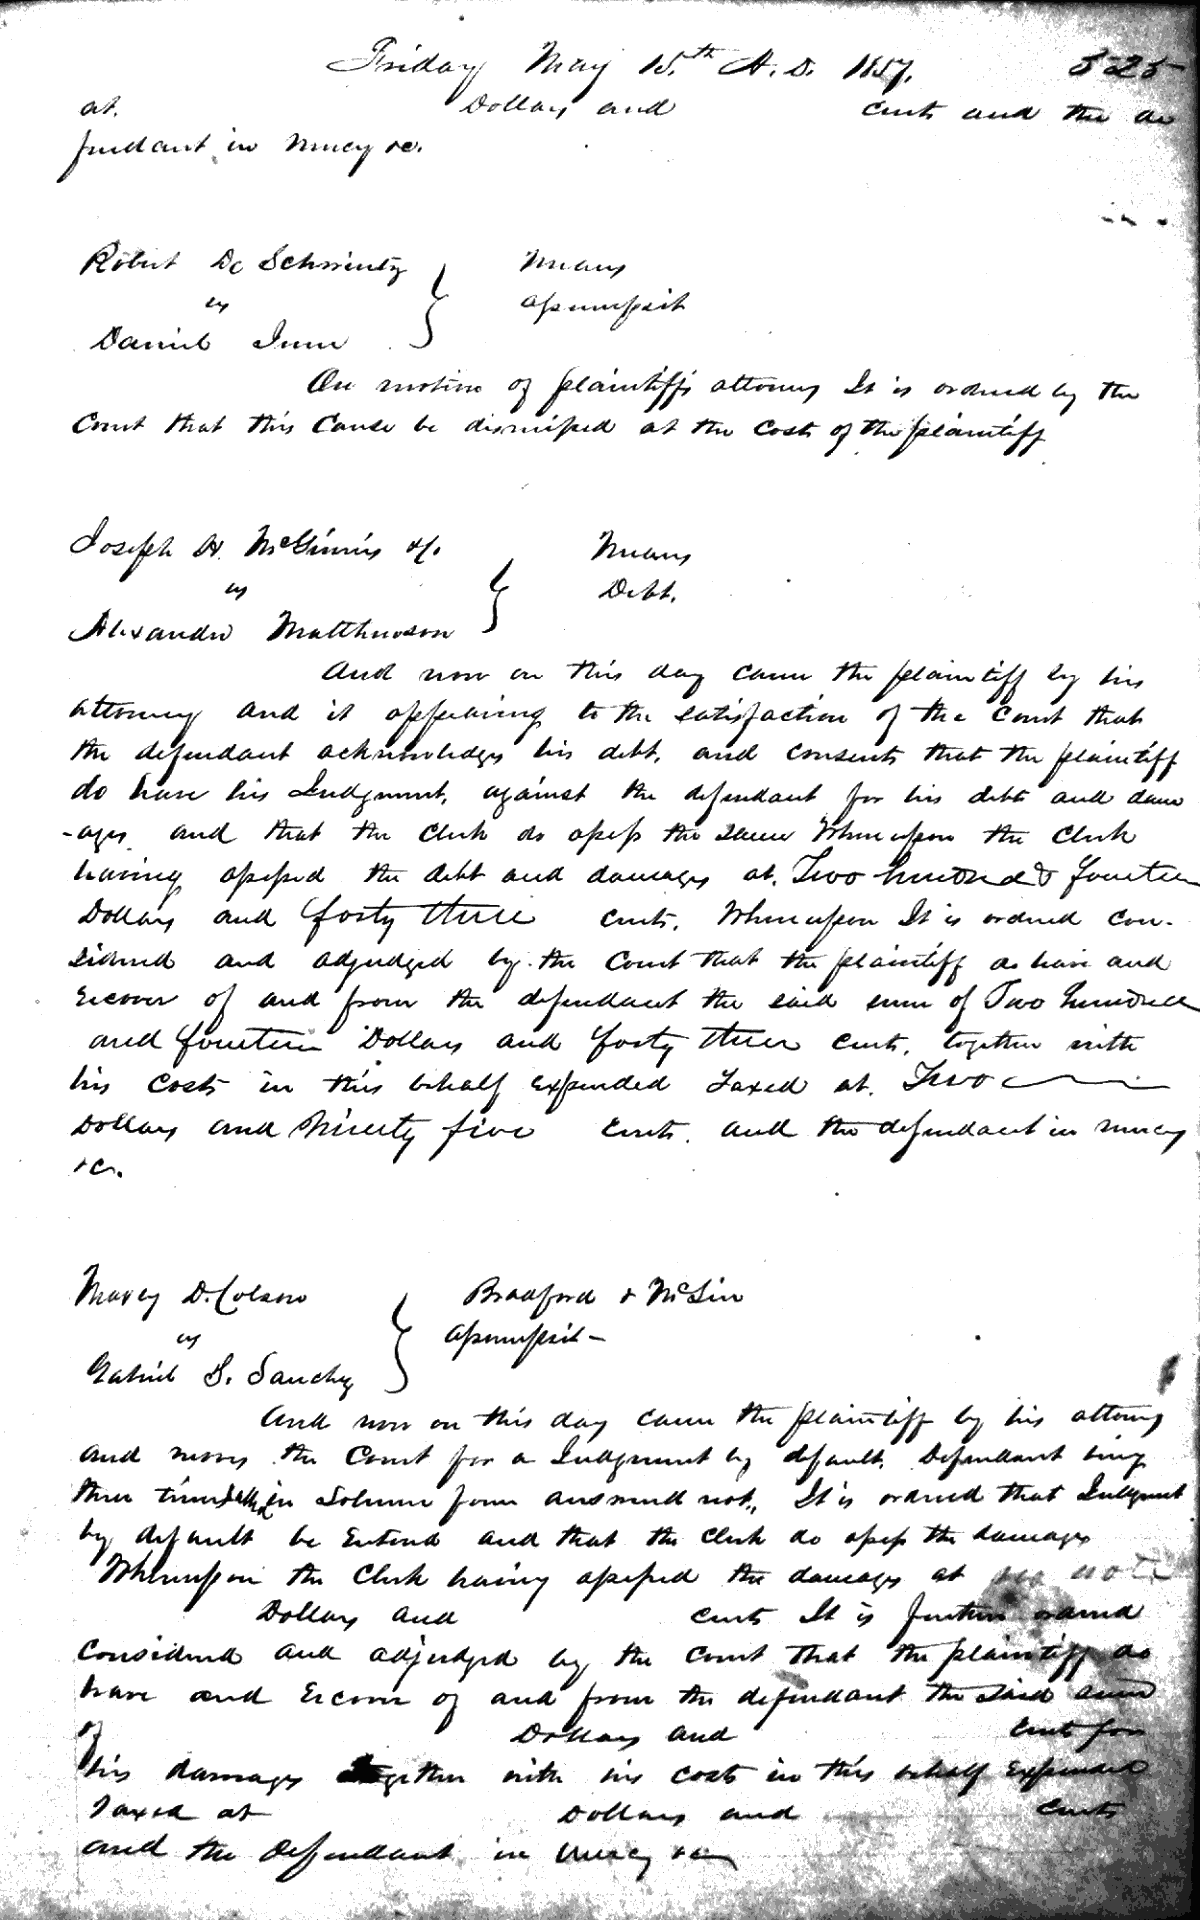 Friday May 15.th A.D. 1857. 525
at. Dollars and cents and the de
fendant in mercy &c.
Robert De Schrientz Means
vs assumpsit
Daniel
On motion of plaintiffs attorney It is ordered by the
Court that this Cause be dismissed at the costs of the plaintiff
Joseph H. McGinnis Means
vs Debt.
Alexander Matthewson
And now on this day came the plaintiff by his
attorney and it appearing to the satisfaction of the Court that
the defendant acknowledges his debt, and consents that the plaintiff
do have his Judgment, against the defendant for his debt and dam
-ages and that the Clerk do assess the same Whereupon the Clerk
having assessed the debt and damages at, Two hundred & fourteen
Dollars and forty three cents. Whereupon It is ordered con-
sidered and adjudged by the Court that the plaintiff do have and
Recover of and from the defendant the said sum of Two hundred
and fourteen Dollars and forty three cents, together with
his costs in this behalf expended Taxed at. Two
Dollars and Ninety five cents. and the defendant in mercy
&c.
D. Colson Bradford & McLin
vs assumpsit-
Gabriel S. Sanchez
And now on this day came the plaintiff by his attorney
and moves the Court for a Judgment by default, Defendant being
three times in Solemn form answered not, It is ordered that Judgment
by default be Entered and that the Clerk do assess the damages
Whereupon the Clerk having assessed the damages at note
Dollars and cents It is further ordered
considered and adjudged by the Court that the plaintiff do
have and Recover of and from the defendant the said sum
of Dollars and cents for
his damages together with his costs in this behalf Expended
Taxed at Dollars and cents
and the Defendant in Mercy &c